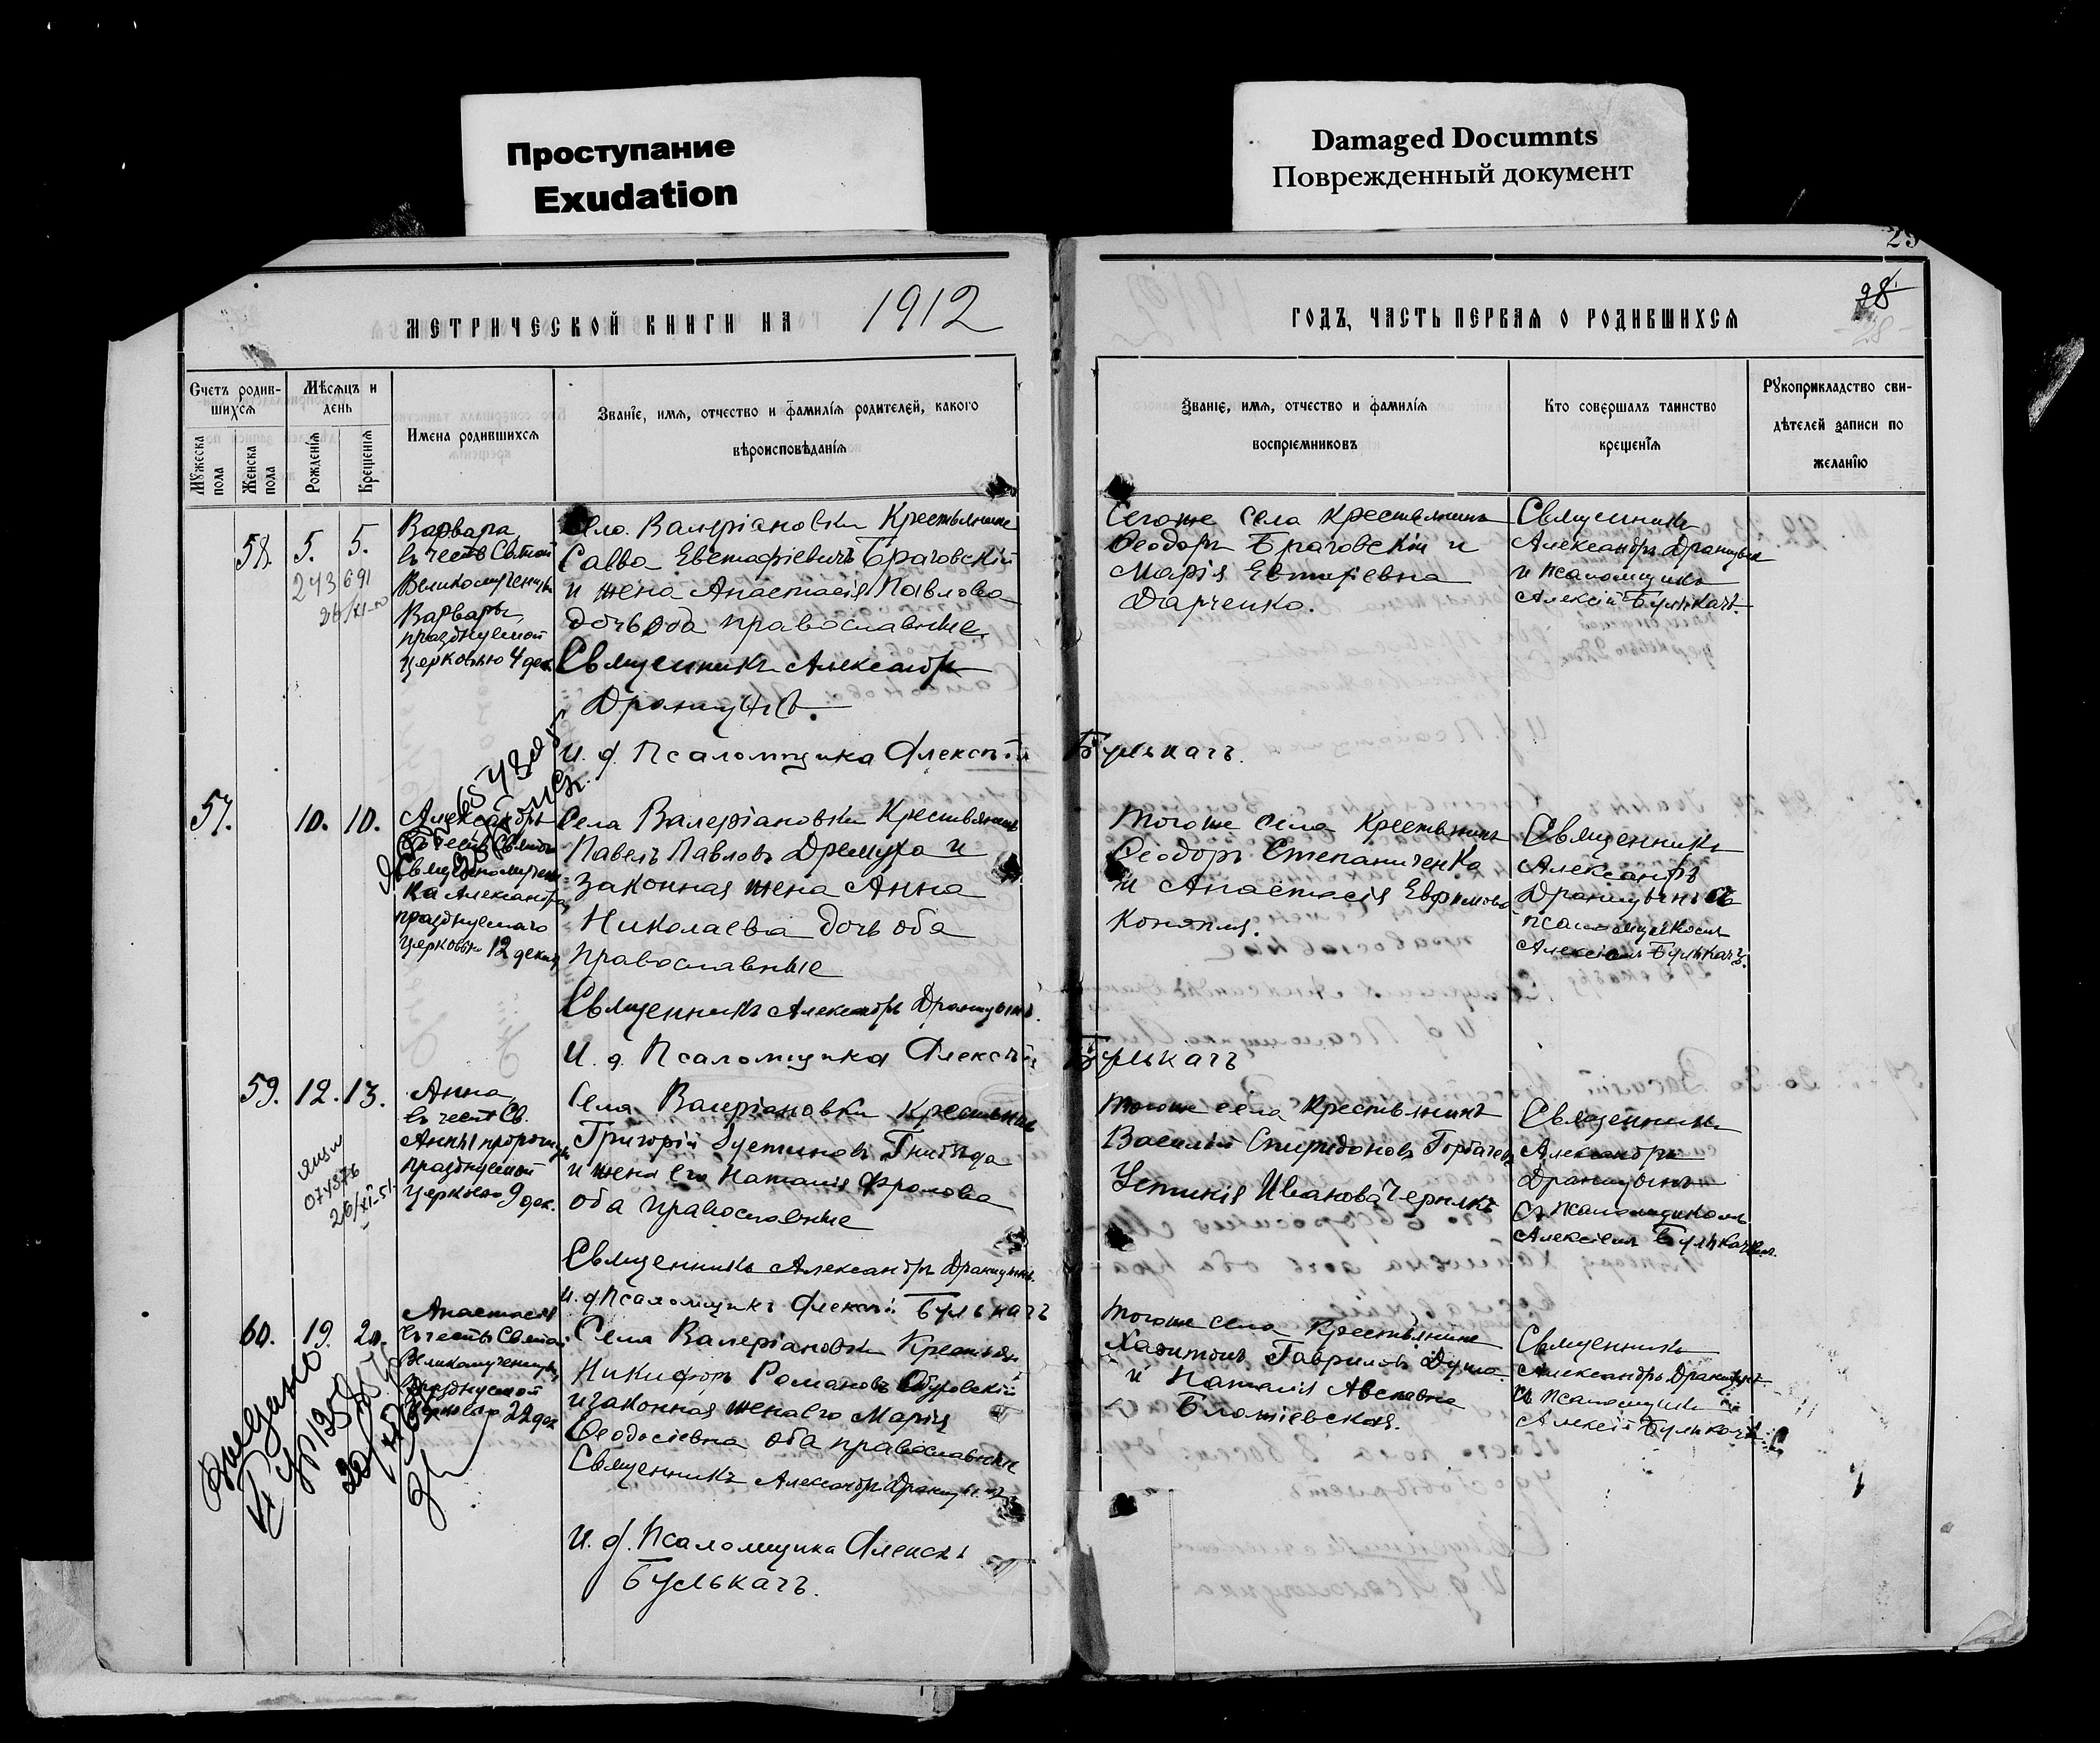 Проступание
Exudation
Damaged Documnts
Поврежденный документ
29
28
МЕТРИЧЕСКОЙ КНИГИ НА 1912
ГОДЪ, ЧАСТЬ ПЕРВАЯ О РОДИВШИХСЯ
Счетъ родив-
шихся
Мѣсяцъ и
день
Мужеска
пола
Женска
пола
Рожденія
Крещенія
Имена родившихся
Званіе, имя, отчество и фамилія родителей, какого
вѣроисповѣданія
Званіе, имя, отчество и фамилія
воспріемниковъ
Кто совершалъ таинство
крещенія
Рукоприкладство сви-
дѣтелей записи по
желанію
58. 5. 5.
243 691
26/XI
Варвара
въ честь Святой
Великомученицы
Варвары
празднуемой
церковью 4 дек.
Села Валеріановки Крестьянинъ
Савва Евстафіевичъ Браговскій
и жена Анастасія Павлова
дочь оба православные
Священникъ Александръ
И. д. Псаломщика Алексѣй Булькачъ.
Сегоже села крестьянинъ
Ѳеодоръ Браговскій и
Марія
Дарченко.
Священникъ
Александръ
и псаломщикъ
Алексій Булькачъ
57. 10. 10.
Александръ
въ честь Святого
Священномучени-
ка Александра,
празднуемаго
церковью 12 декаб
Села Валеріановки Крестьянинъ
Павелъ Павловъ Дремуха и
законная жена Анна
Николаева дочь оба
православные
Священникъ Александръ
И. д. Псаломщика Алексѣй Булькачъ
Тогоже села Крестьянинъ
Ѳеодоръ Степаниченка
и Анастасія Ефимова
Конопля.
Священникъ
Александръ
псаломщикомъ
Алексіемъ Булькачъ.
59. 12. 13.
074376
26/XI-51
Анна
въ честь Св.
Анны пророчицы
празднуемой
церковью 9 дек.
Села Валеріановки крестьянинъ
Григорій Устиновъ Гнибѣда
и жена его Наталія Фролова
оба православные
Священникъ Александръ
И. д. Псаломщикъ Алексѣй Булькачъ
Тогоже села крестьянинъ
Василій Спиридоновъ Горбачевъ
Устинія Иванова Чернякъ
Священникъ
Александръ
съ псаломщикомъ
Алексіемъ Булькачемъ.
60. 19. 20.
Анастасія
въ честь Святой
Великомученицы
празднуемой
церковью 22 дек
Села Валеріановки Крестьян
Никифоръ Романовъ
и законная жена его Марія
Ѳеодосіевна оба православные
Священникъ Александръ
И. д. Псаломщика Алексѣй
Булькачъ.
Тогоже села Крестьянинъ
Харитонъ Гавриловъ Дума
и Наталія
Священникъ
Александръ
и псаломщикъ
Алексій Булькачъ